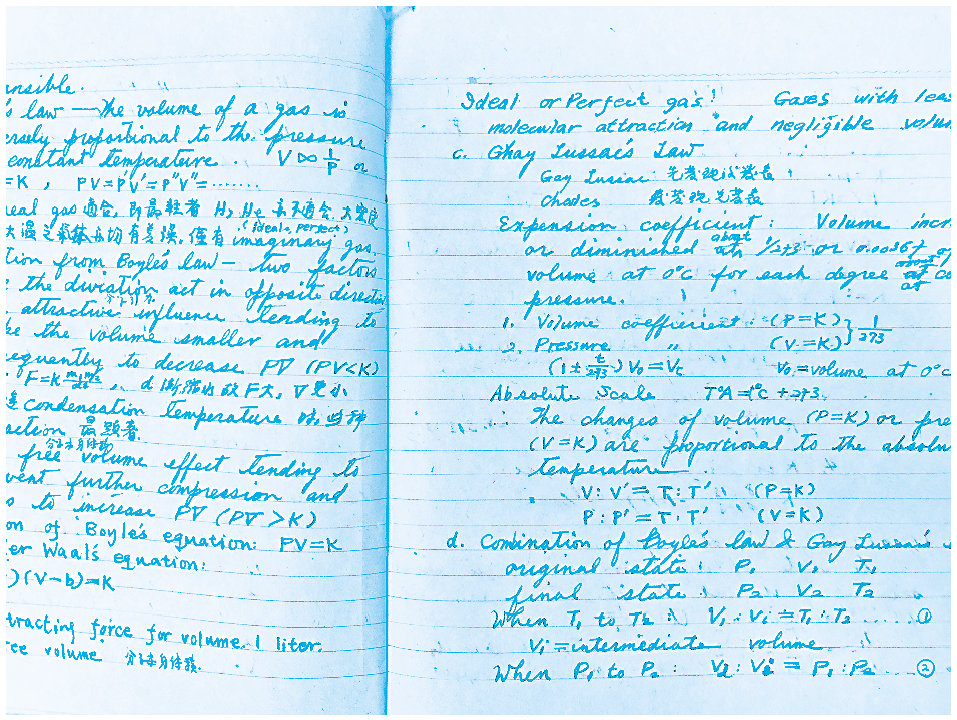 ensible.
's law — The volume of a gas is
ersely proportional to the pressure
constant temperature. V ∞ 1/P or
=K, PV=P'V'=P"V"=.......
real gas 適合, 即最輕者 H₂ He 亦不適合. 大
(ideal, perfect)
大溫之氣体亦均有差誤, 僅有 imaginary gas.
tion from Boyle's law — two factors
the diviation act in opposite directi
分子引力
attractive influence tending to
ke the volume smaller and
equently to decrease PV (PV<K)
F=K m₁m₂/d² , d 漸縮小故F大, V更小
condensation temperature 時,
action 最顯者.
分子本身体積
free volume effect tending to
vent further compression and
s to increase PV (PV>K)
on of Boyle's equation: PV=K
er Waal's equation:
)(V-b)=K
tracting force for volume 1 liter.
ree volume 分子本身体積.
Ideal or Perfect gas! Gases with leas
molecular attraction and negligible volum
c. Ghay Lussai's Law
Gay Lussac 先發現後發表
Charles 後發現先發表
Expension coefficient: Volume incr
or diminished about 1/273 or 0.00367 of
volume at 0°C for each degree at co
pressure.
1. Volume coefficient: (P=K) } 1/273
2. Pressure " (V=K)
(1 ± t/273) V₀ = Vt V₀=volume at 0°C
Absolute Scale T°A = t°C + 273.
The changes of volume (P=K) or pre
(V=K) are proportional to the absolu
temperature
V:V' = T:T' (P=K)
P:P' = T:T' (V=K)
d. Combination of Boyle's law & Gay Lussai's
original state: P₁ V₁ T₁
final state: P₂ V₂ T₂
When T₁ to T₂: V₁:Vi = T₁:T₂ .... ①
Vi = intermediate volume
When P₁ to P₂: V₂:Vi = P₁:P₂ ... ②